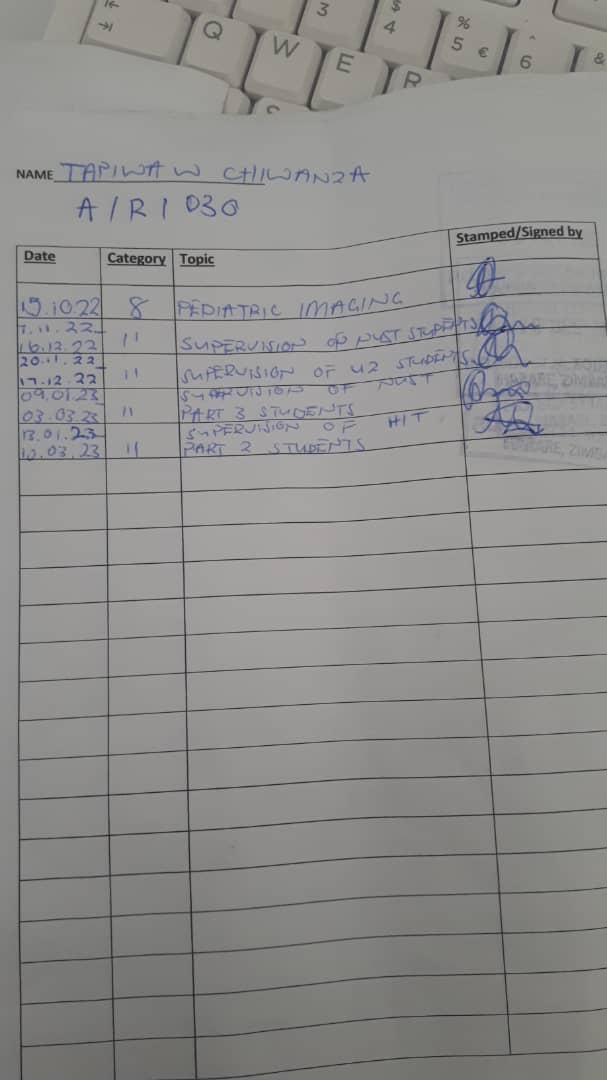 3 $ 4 % 5 € 6 &
Q W E R
NAME TAPIWA W CHIWANZA
A/R1030
Date Category Topic Stamped/Signed by
19.10.22 8 PEDIATRIC IMAGING
7.11.22
16.12.22 11 SUPERVISION OF NUST STUDENTS
20.11.22
17.12.22 11 SUPERVISION OF U2 STUDENTS
09.01.23 SUPERVISION OF NUST
03.03.23 11 PART 3 STUDENTS
13.01.23 SUPERVISION OF HIT
10.03.23 11 PART 2 STUDENTS
HARARE, ZIMBA